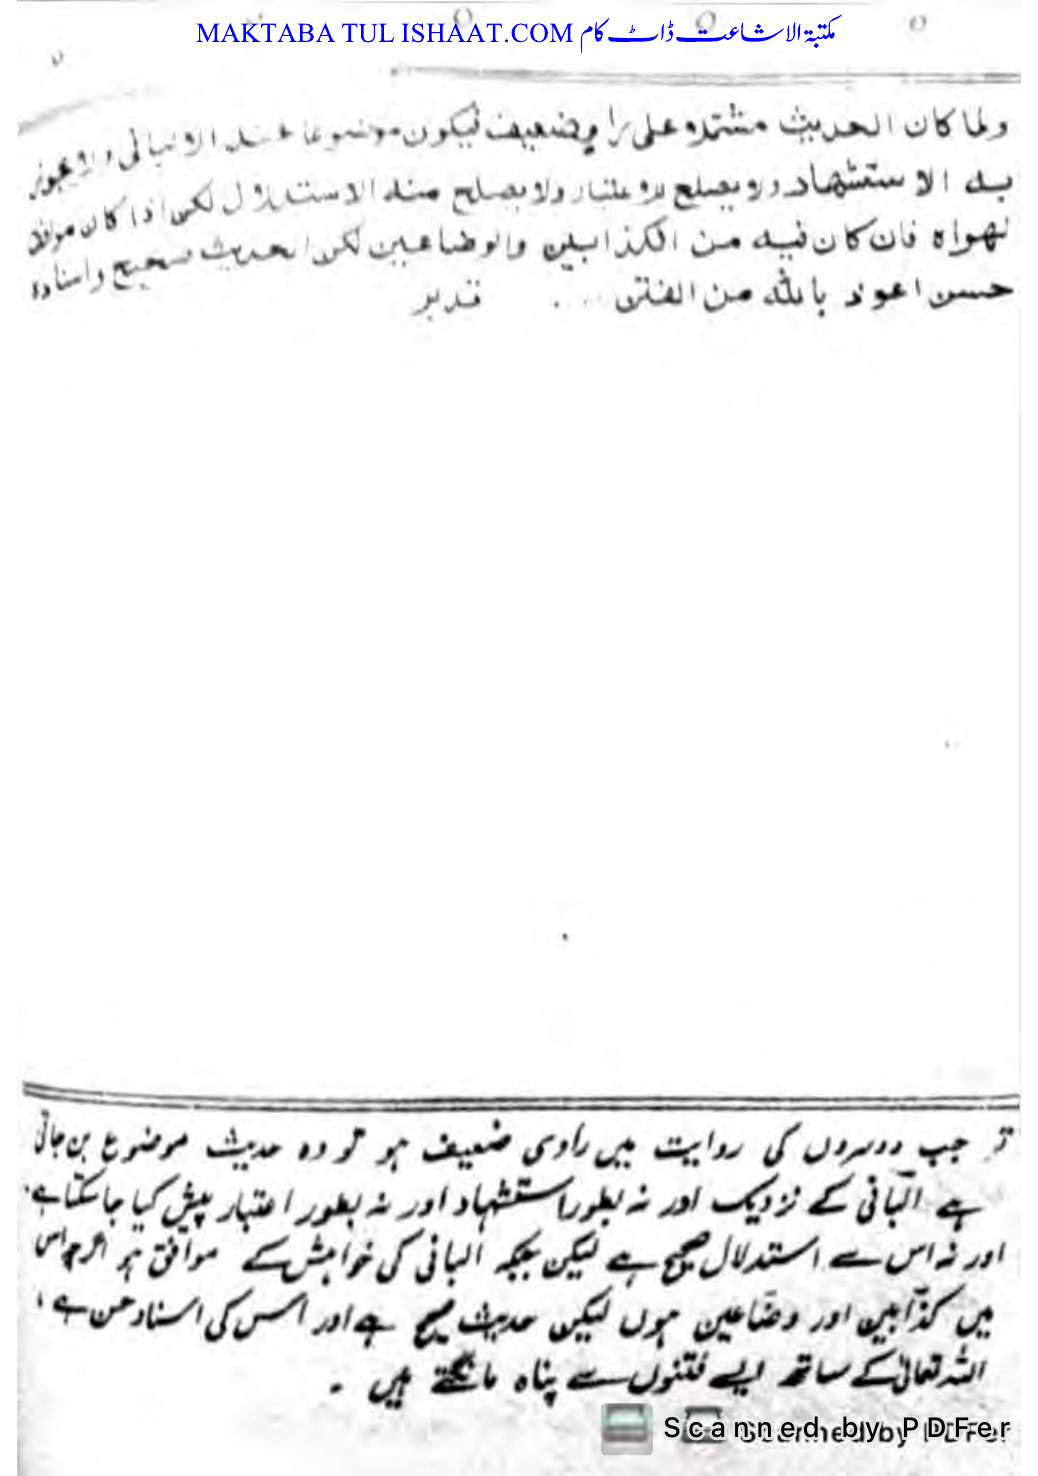 MAKTABA TUL ISHAAT.COM مکتبۃ الاشاعت ڈاٹ کام
ولما كان الحديث مشتمله على راوٍ ضعيف فيكون موضوعا عند الالبانى ولا يجوز
به الاستشهاد ولا يصلح للاعتبار ولا يصلح منه الاستدلال لكن اذا كان موافق
لهواه فان كان فيه من الكذابين والوضاعين لكن الحديث صحيح واسناده
حسن اعوذ بالله من الفتن ... تدبر
جب دوسروں کی روایت میں راوی ضعیف ہو تو وہ حدیث موضوع بن جاتی
ہے البانی کے نزدیک اور نہ بطور استشہاد اور نہ بطور اعتبار پیش کیا جا سکتا ہے،
اور نہ اس سے استدلال صحیح ہے لیکن جبکہ البانی کی خواہش کے موافق ہو اگرچہ اس
میں کذّابین اور وضّاعین ہوں لیکن حدیث صحیح ہے اور اس کی اسناد حسن ہے،
اللہ تعالیٰ کے ساتھ ایسے فتنوں سے پناہ مانگتے ہیں ۔
Scanned by PDFer